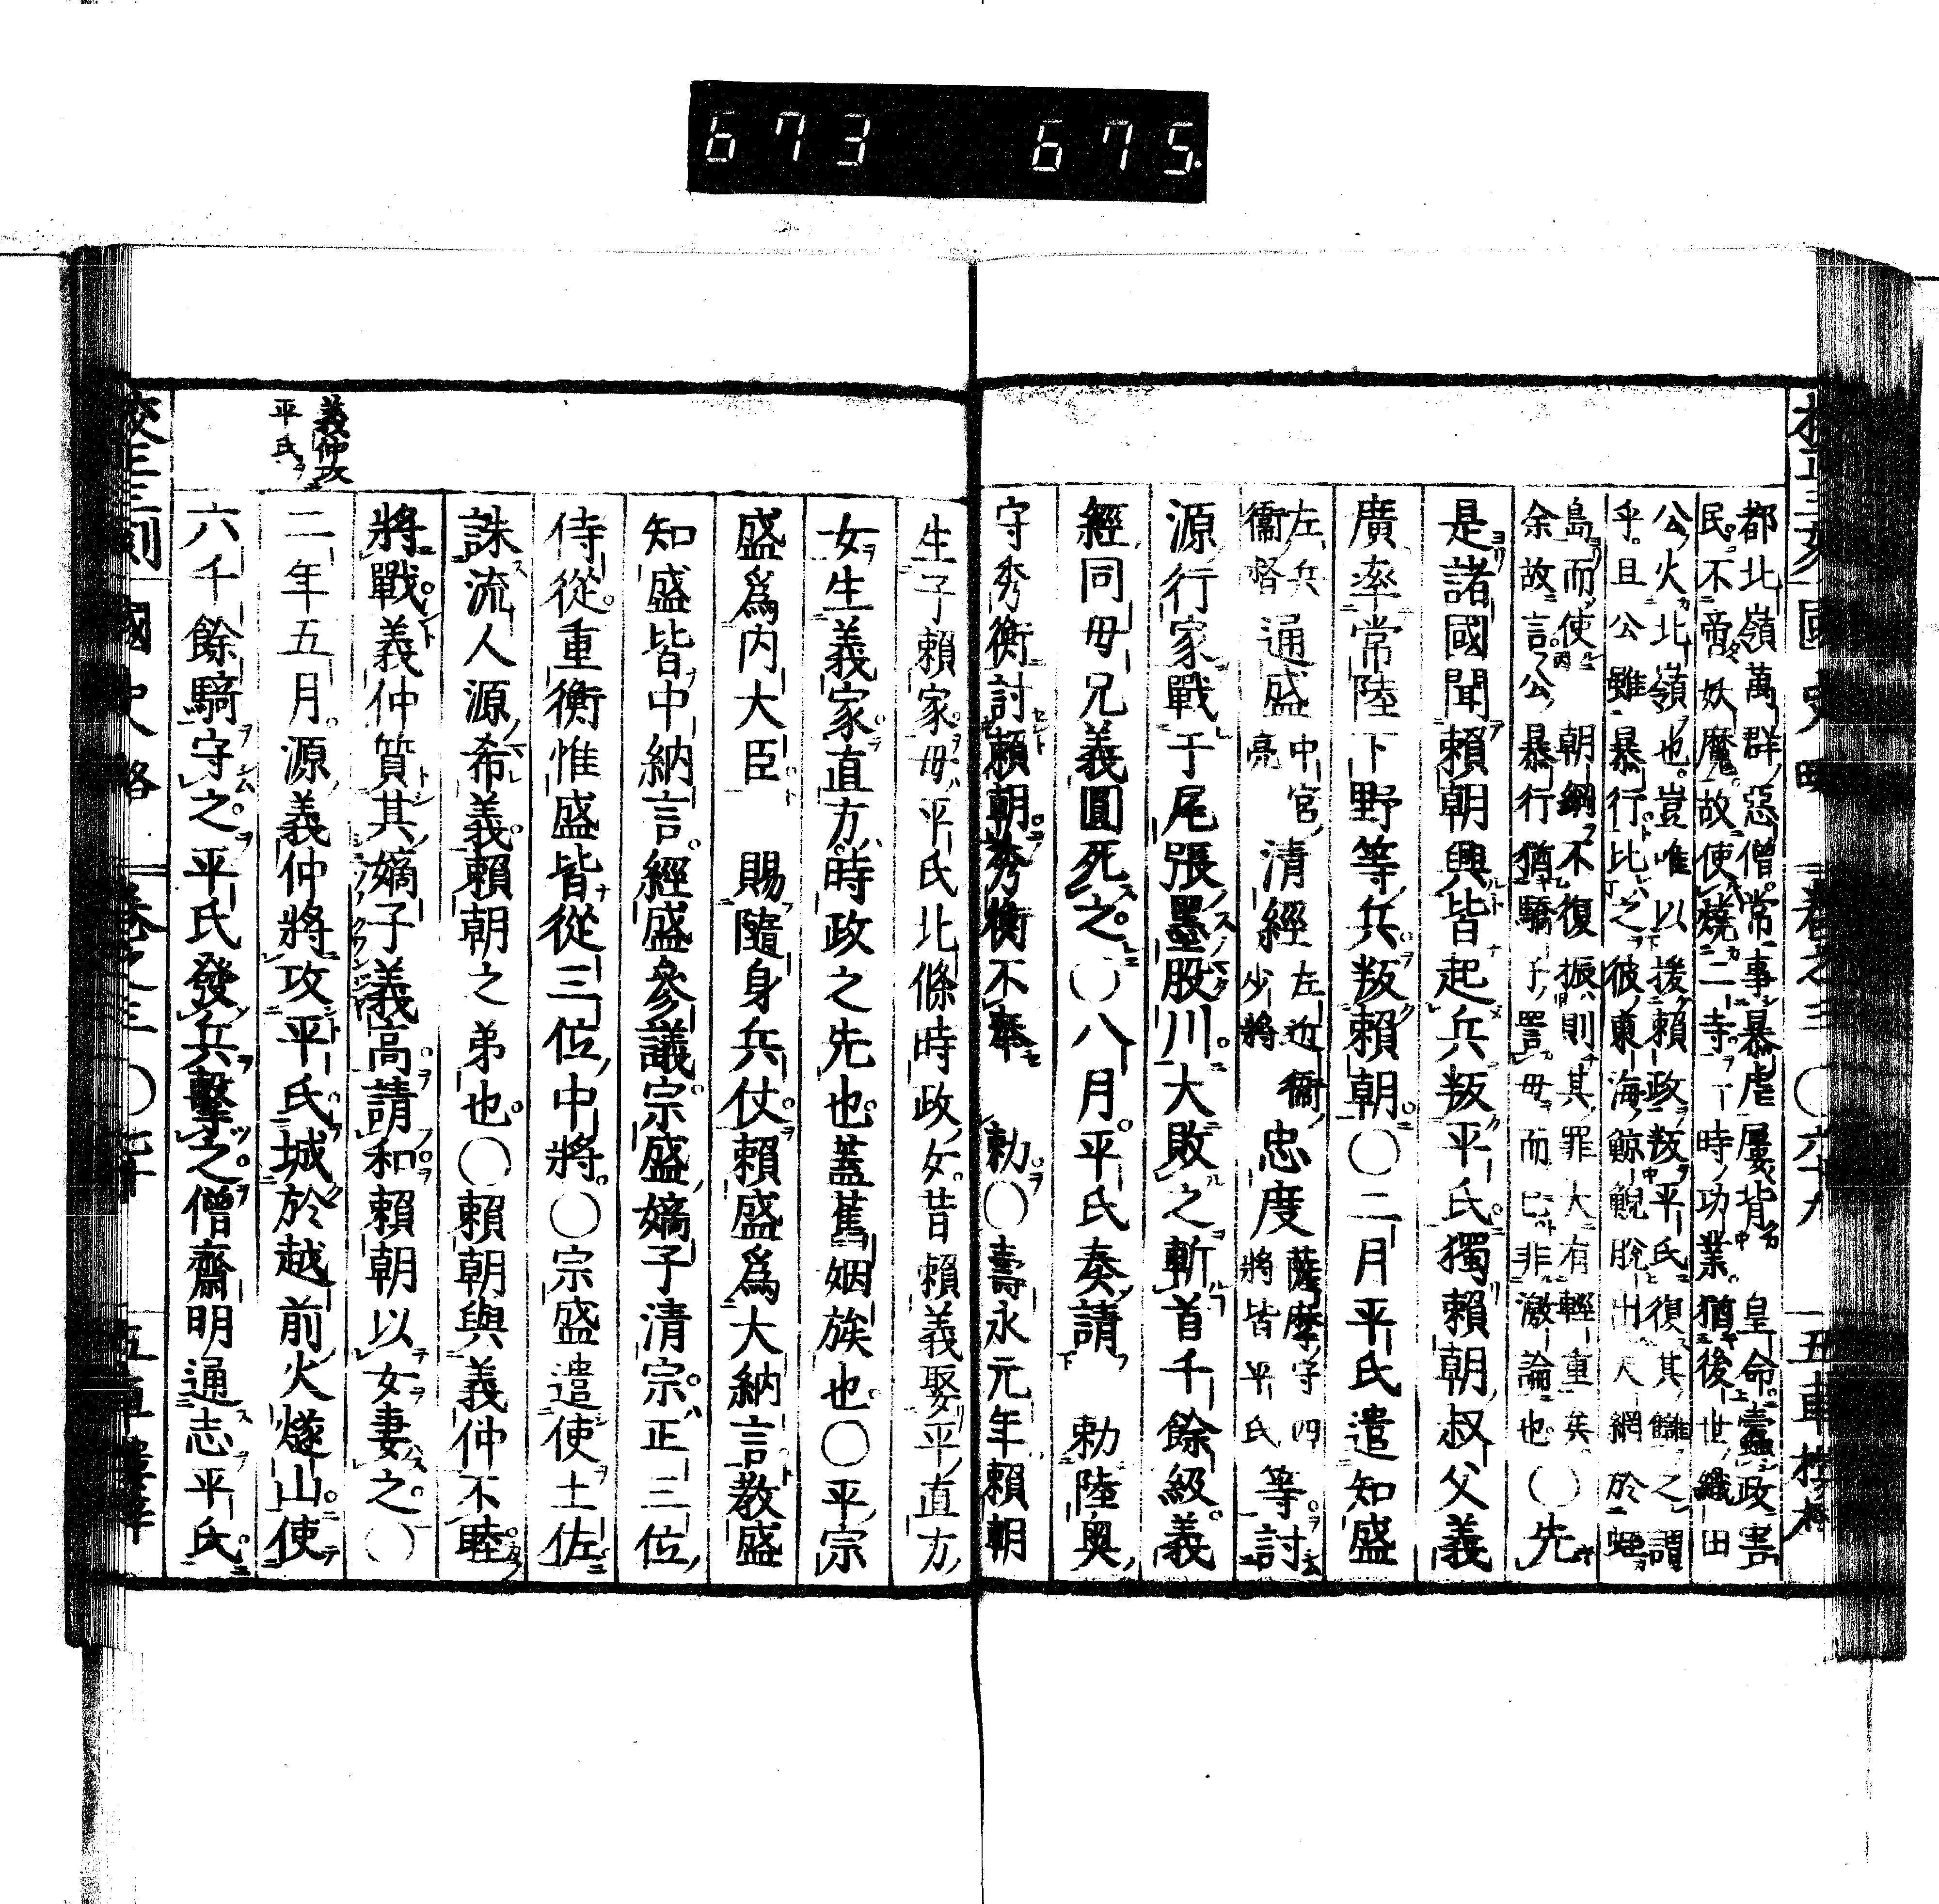 673 675.
都北嶺萬群惡僧常事暴虐屢背 皇命蠹政害
民不帝妖魔故使燒二寺一時功業猶後世織田
公火北嶺也豈唯以援賴政叛平氏復其讎之謂
乎且公雖暴行比之彼東海鯨鯢脫出天網於蛭
島而使 朝綱不復振則其罪大有輕重矣
余故言公暴行猶驕子詈母而已非激論也〇先
是諸國聞賴朝興皆起兵叛平氏獨賴朝叔父義
廣率常陸下野等兵叛賴朝〇二月平氏遣知盛
左兵衞督通盛中宮亮清經左近衞少將忠度薩摩守四將皆平氏等討
源行家戰于尾張墨股川大敗之斬首千餘級義
經同母兄義圓死之〇八月平氏奏請 勅陸奥
守秀衡討賴朝秀衡不奉 勅〇壽永元年賴朝
生子賴家母平氏北條時政女昔賴義娶平直方
女生義家直方時政之先也蓋舊姻族也〇平宗
盛爲内大臣 賜隨身兵仗賴盛爲大納言教盛
知盛皆中納言經盛參議宗盛嫡子清宗正三位
侍從重衡惟盛皆從三位中將〇宗盛遣使土佐
誅流人源希義賴朝之弟也〇賴朝與義仲不睦
將戰義仲質其嫡子義高請和賴朝以女妻之〇
義仲攻
平氏
二年五月源義仲將攻平氏城於越前火燧山使
六千餘騎守之平氏發兵擊之僧齋明通志平氏
國史略 卷之三 〇七十 五車樓梓